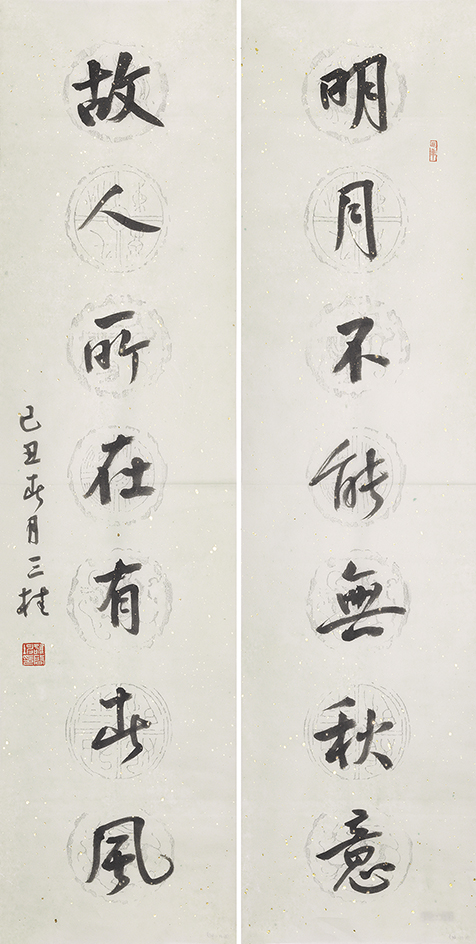 明月不能無秋意
故人所在有春風
己丑春月三桂